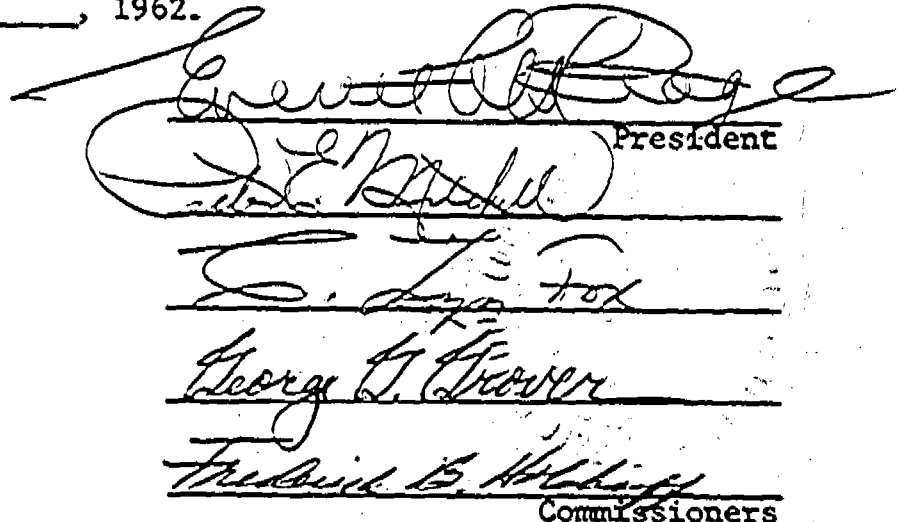 , 1962.
Everett C. McKeage
President
E. Mitchell
C. Lyn Fox
George G. Grover
Frederick B. Holoboff
Commissioners